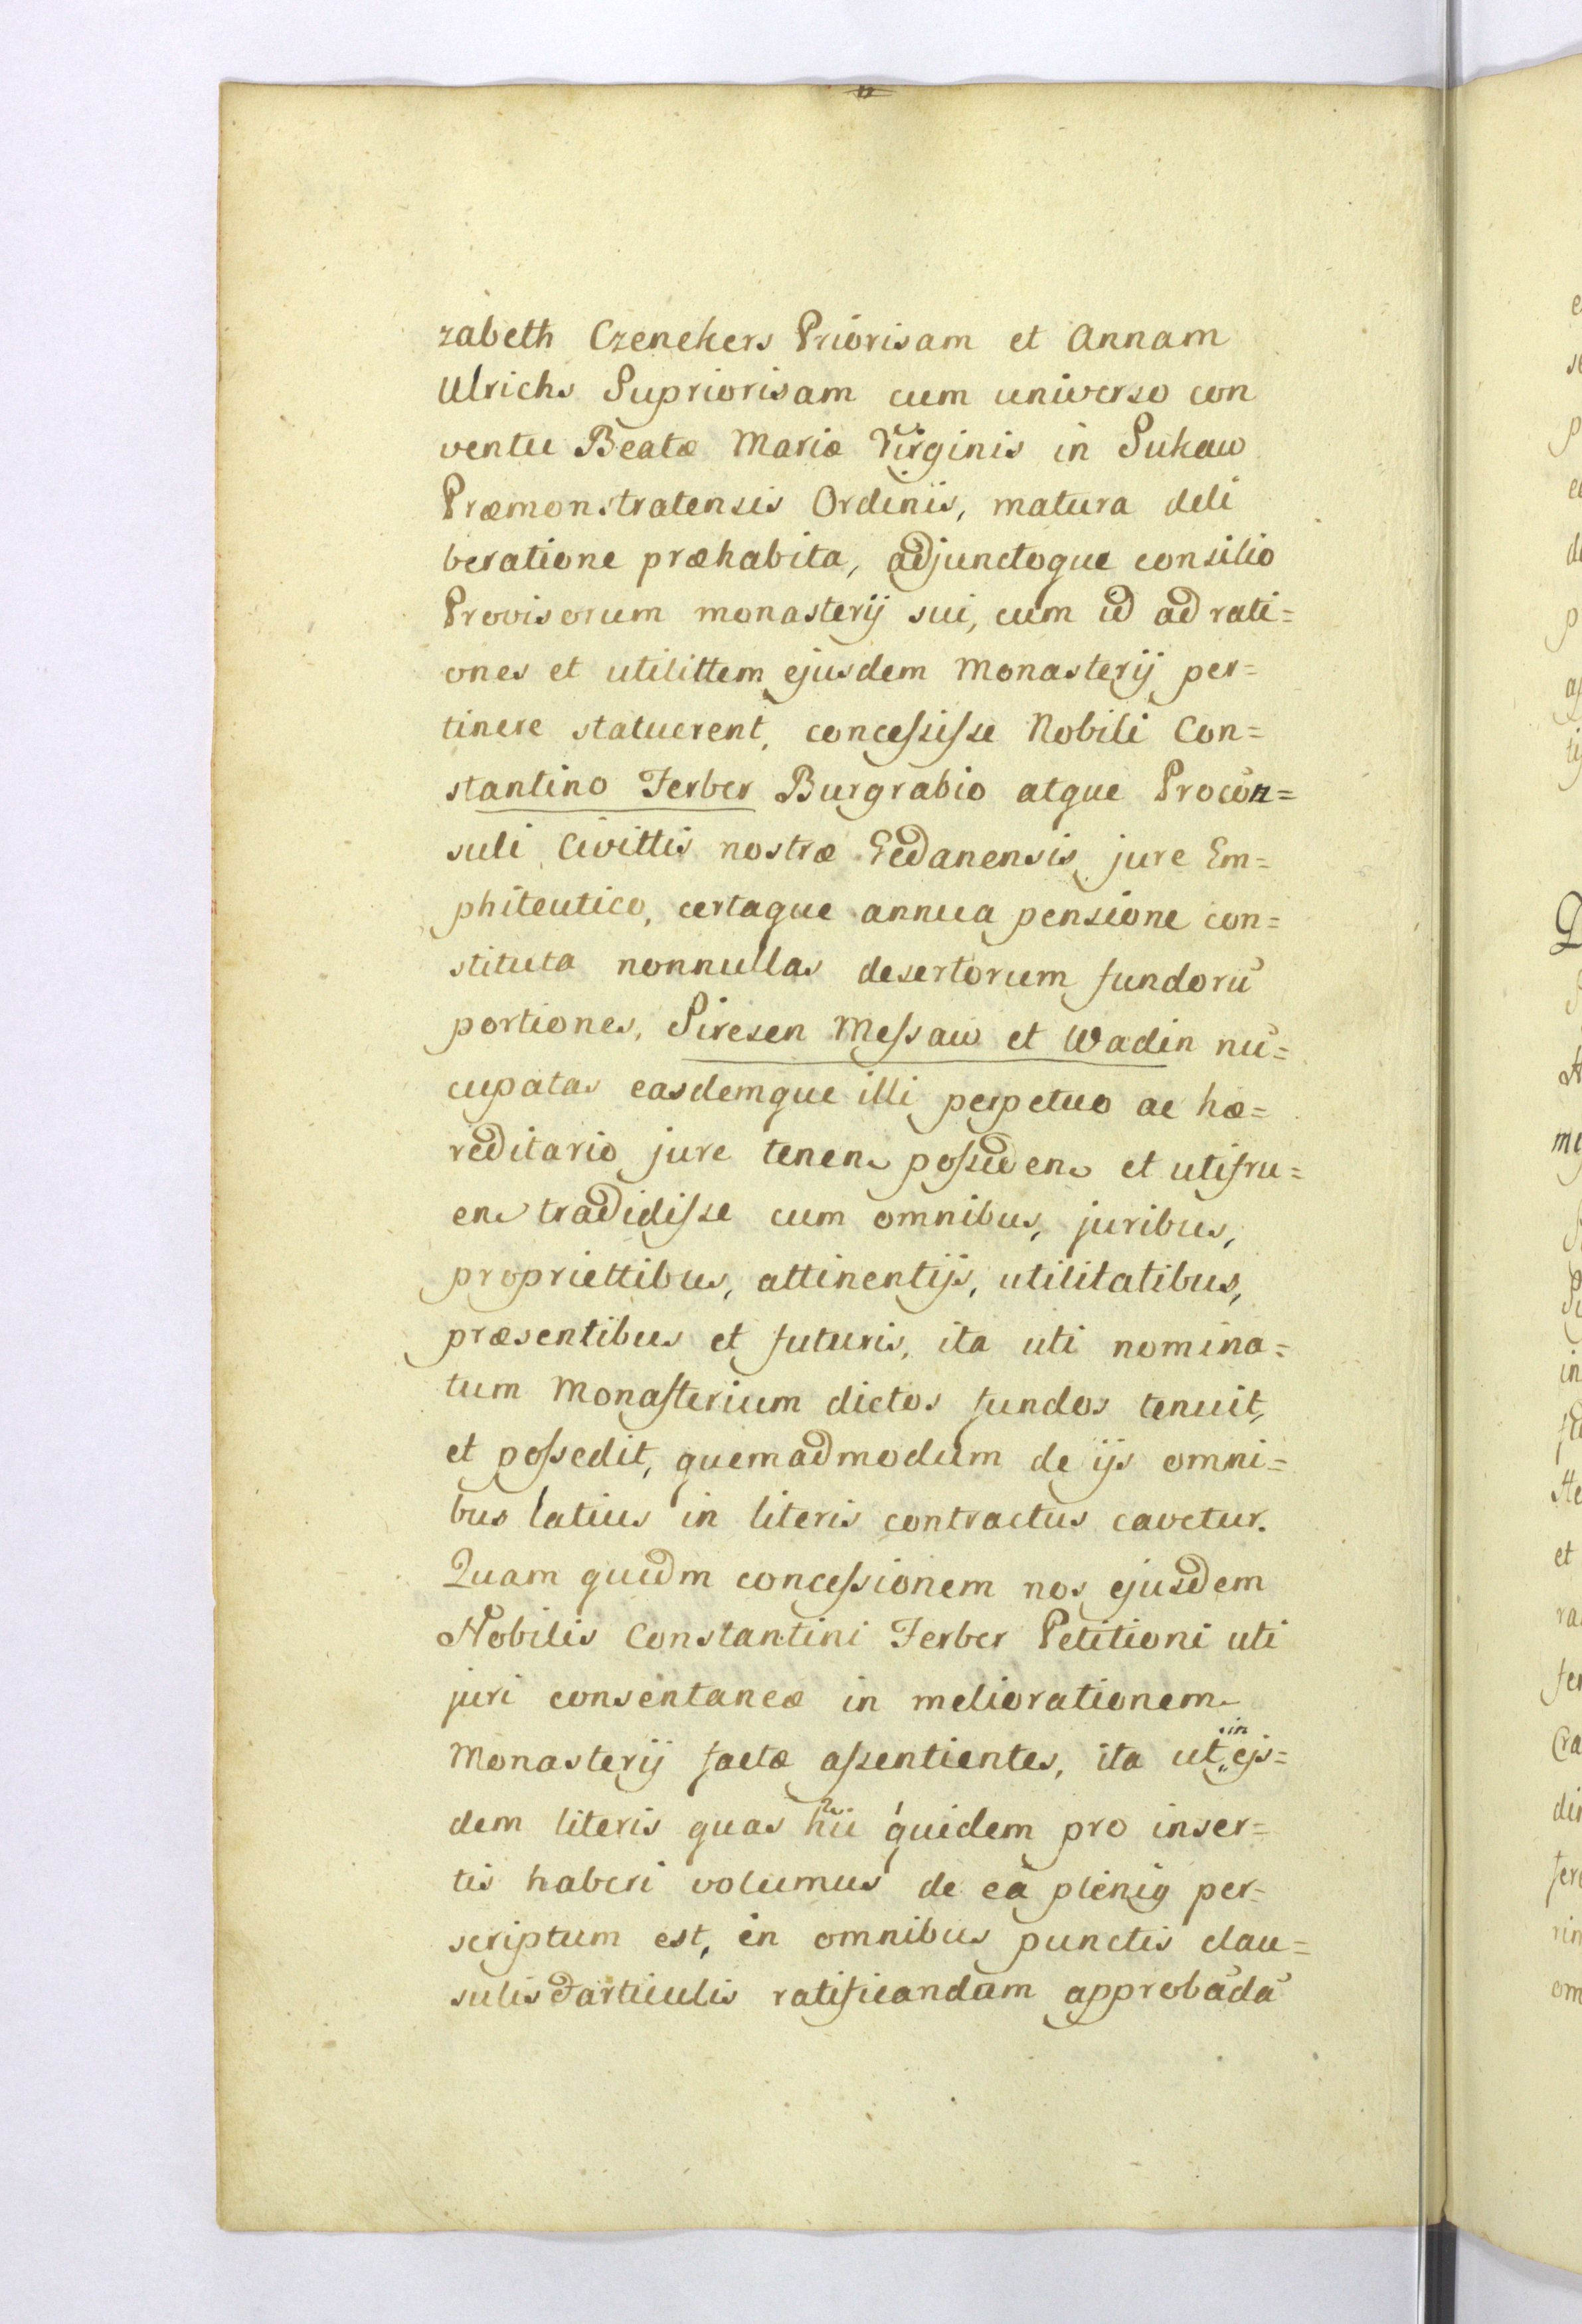 zabeth Czenekers Priorisam et Annam
Ulrichs Supriorisam cum universo con
ventu Beatæ Mariæ Virginis in Sukaw
Præmonstratensis Ordinis, matura deli
beratione præhabita, adjunctoque consilio
Provisorum monasterij sui, cum id ad rati=
ones et utilittem ejusdem Monasterij per=
tinere statuerent, concesſisſe Nobili Con=
stantino Ferber Burgrabio atque Procon=
suli Civittis nostræ Gedanensis jure Em=
phiteutico, certaque annua pensione con=
stituta nonnullas desertorum fundorū
portiones, Siresen Meſsaw et Wadin nū=
cupatas easdemque illi perpetuo ac hæ=
reditario jure tenen. poſsiden. et utifru=
en. tradidiſse cum omnibus, juribus,
propriettibus, attinentijs, utilitatibus,
præsentibus et futuris, ita uti nomina=
tum Monaſterium dictos fundos tenuit,
et poſsedit, quemadmodum de ijs omni=
bus latius in literis contractus cavetur.
Quam quidm conceſsionem nos ejusdem
Nobilis Constantini Ferber Petitioni uti
juri consentaneæ in meliorationem
Monasterij factæ aſsentientes, ita ut in ejs=
dem literis quas hīi quidem pro inser=
tis haberi volumus de ea plenig per=
scriptum est, in omnibus punctis clau=
sulis articulis ratificandam approbādā